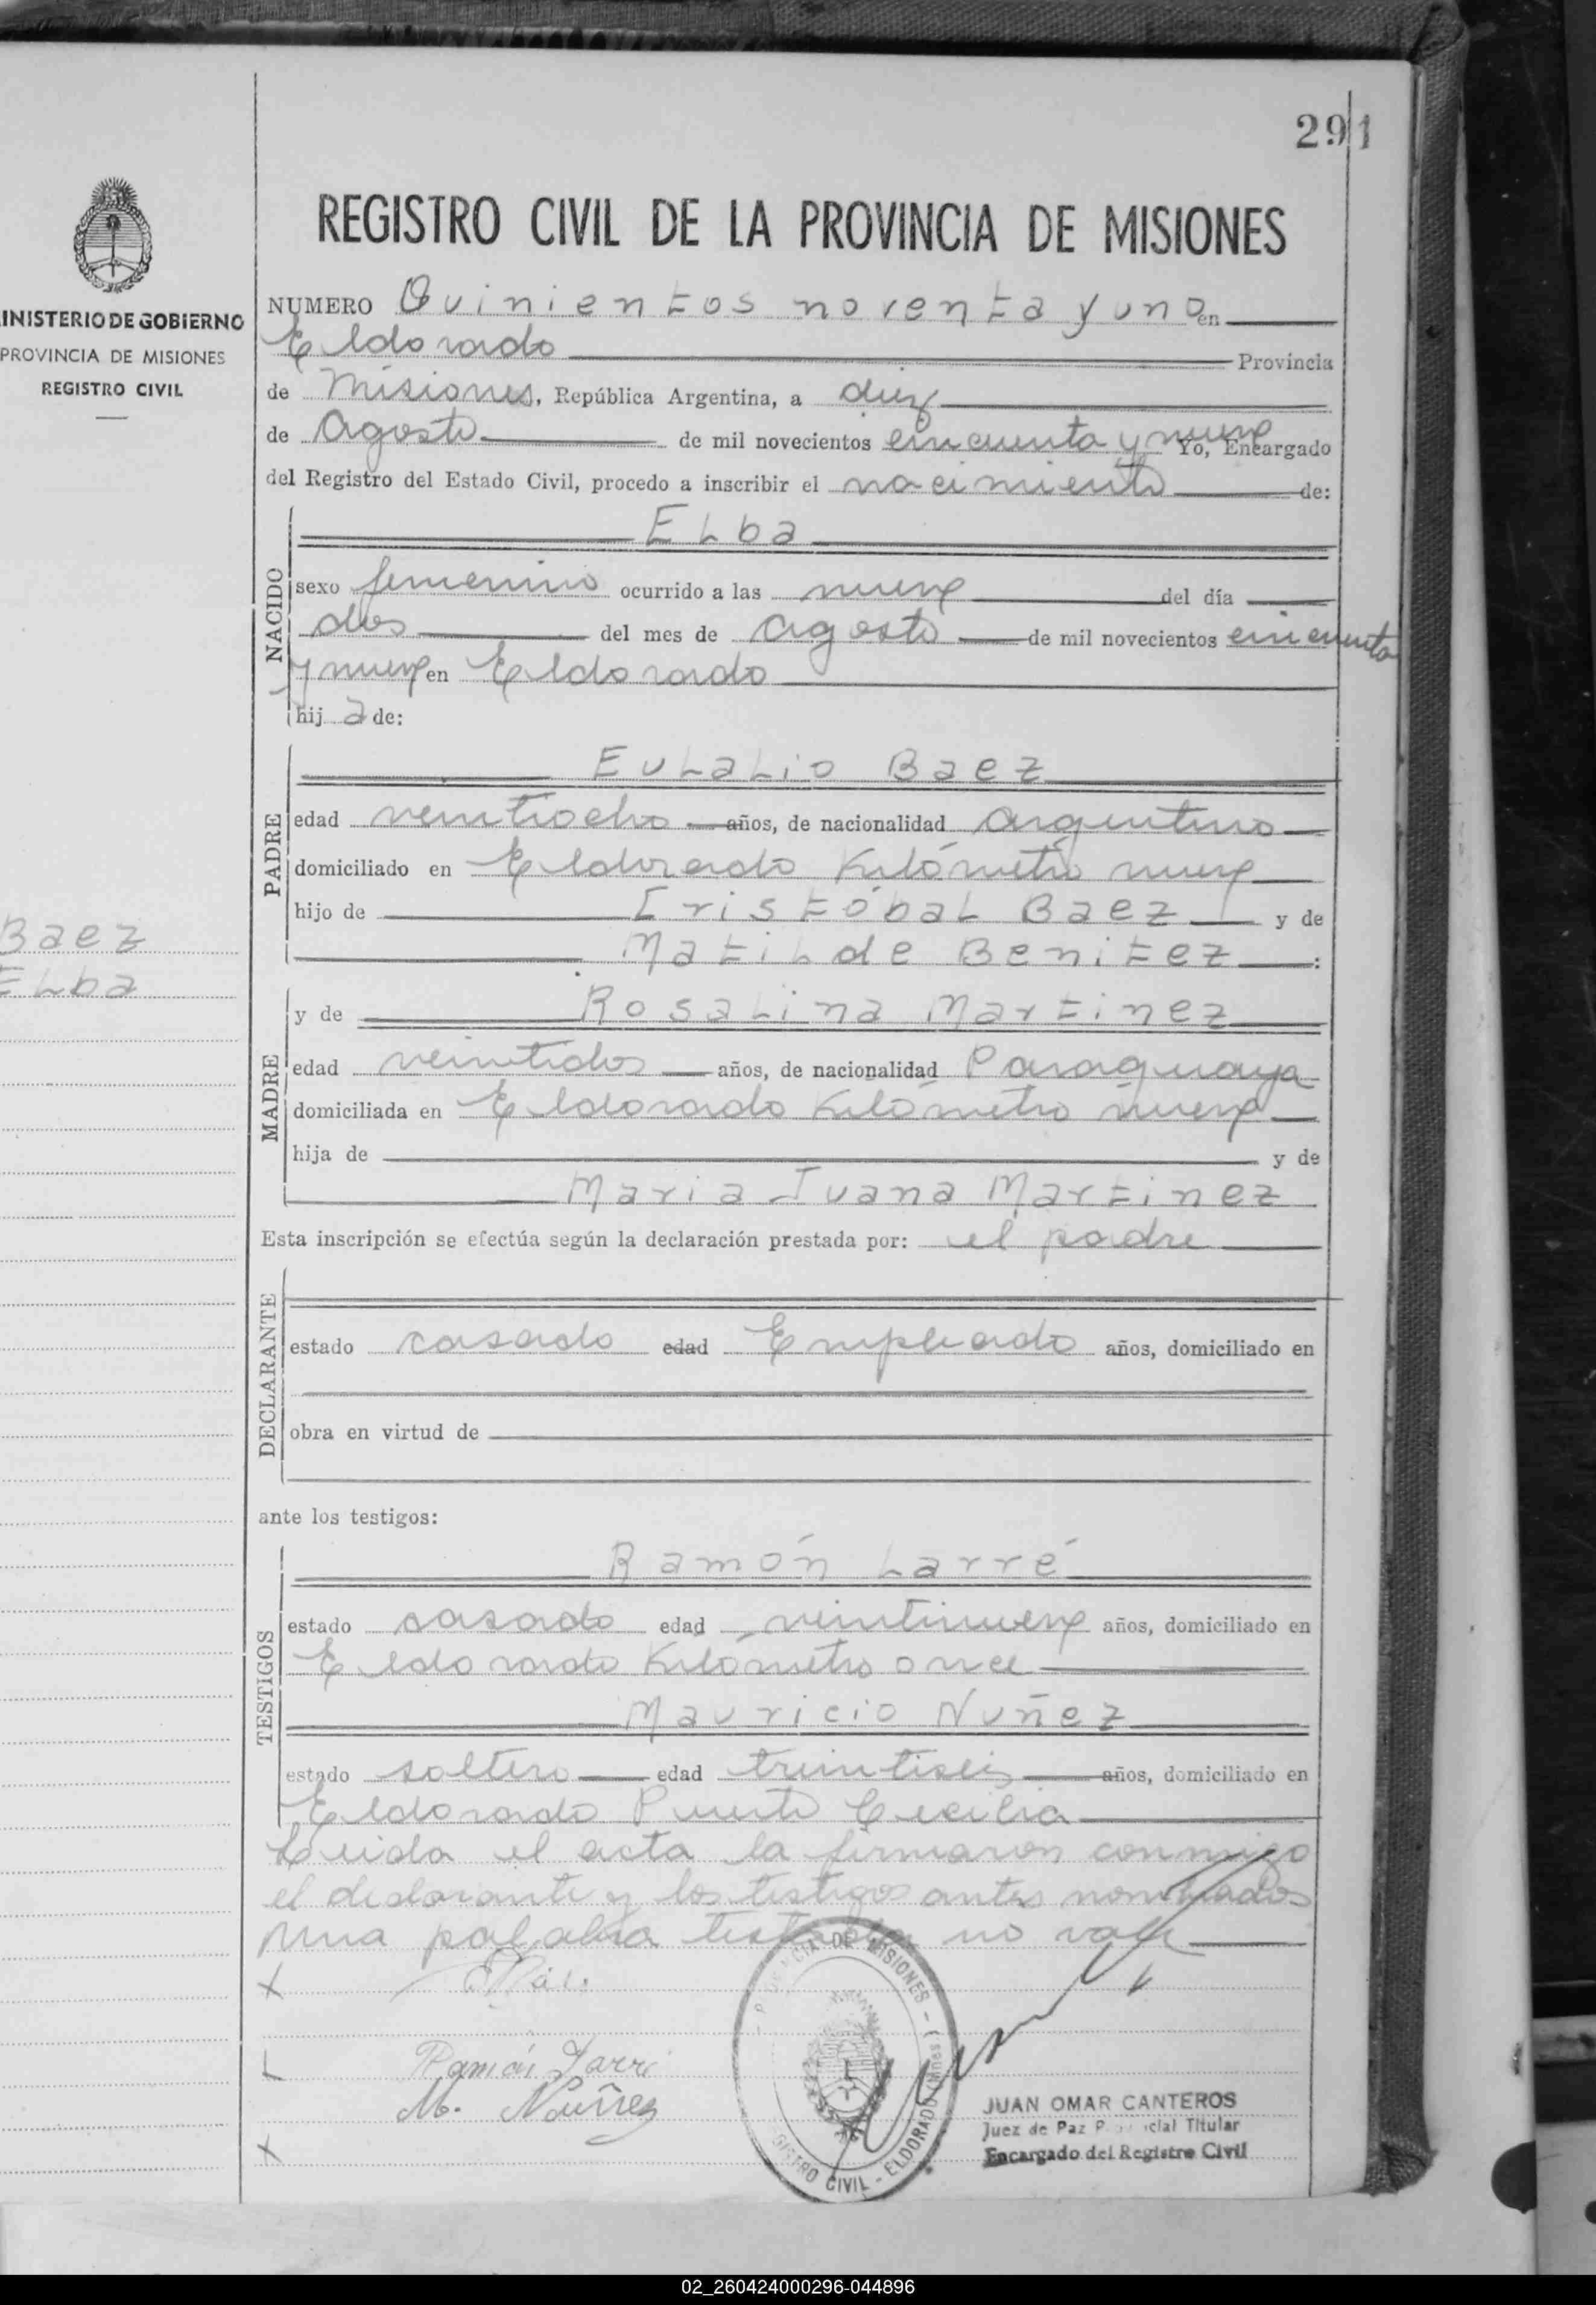 291
REGISTRO CIVIL DE LA PROVINCIA DE MISIONES
INISTERIO DE GOBIERNO
PROVINCIA DE MISIONES
REGISTRO CIVIL
NUMERO Quinientos noventa y uno en
Eldorado Provincia
de Misiones, República Argentina, a diez
de Agosto de mil novecientos cincuenta y nueve Yo, Encargado
del Registro del Estado Civil, procedo a inscribir el nacimiento de:
NACIDO
Elba
sexo femenino ocurrido a las nueve del día
dos del mes de Agosto de mil novecientos cincuenta
y nueve en Eldorado
hij a de:
PADRE
Eulalio Baez
edad veintiocho años, de nacionalidad Argentino
domiciliado en Eldorado Kilómetro nueve
hijo de Cristóbal Baez y de
Matilde Benitez :
Baez
Elba
MADRE
y de Rosalina Martinez
edad veintidos años, de nacionalidad Paraguaya
domiciliada en Eldorado Kilómetro nueve
hija de y de
Maria Juana Martinez
Esta inscripción se efectúa según la declaración prestada por: el padre
DECLARANTE
estado casado edad Empleado años, domiciliado en
obra en virtud de
ante los testigos:
TESTIGOS
Ramón Larré
estado casado edad veintinueve años, domiciliado en
Eldorado Kilómetro once
Mauricio Nuñez
estado soltero edad treintiseis años, domiciliado en
Eldorado Puerto Cecilia
Leida el acta la firmaron conmigo
el declarante y los testigos antes nombrados
una palabra testada no vale
Ramón Larré
M. Nuñez
CIA DE MISIONES - ELDORADO (Mnes)
GISTRO CIVIL
JUAN OMAR CANTEROS
Juez de Paz P cial Titular
Encargado del Registro Civil
02_260424000296-044896